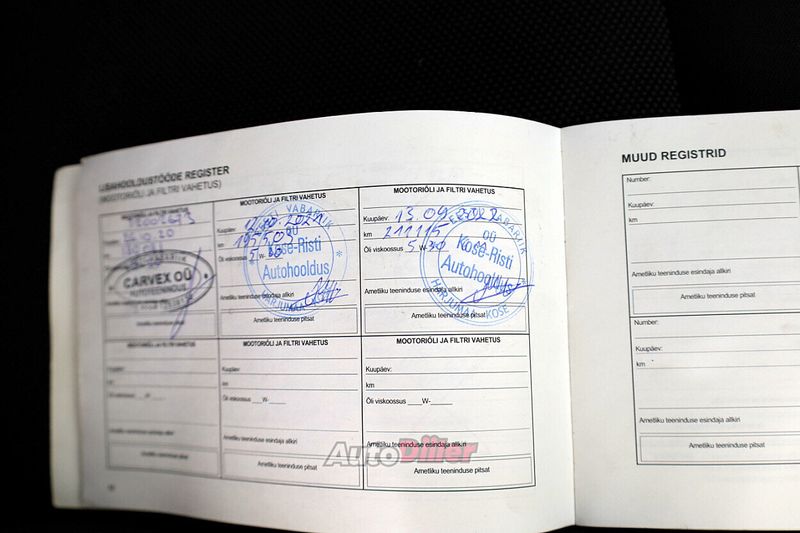 LISAHOOLDUSTÖÖDE REGISTER
(MOOTORIÕLI JA FILTRI VAHETUS)
MOOTORIÕLI JA FILTRI VAHETUS
CARVEX OÜ
AUTOTEENINDUS
Ametliku teeninduse pitsat
MOOTORIÕLI JA FILTRI VAHETUS
Kuupäev:
km 195503
Õli viskoossus 5 W- 30
OÜ
Kose-Risti
Autohooldus
VABARIIK
HARJUMAA
Ametliku teeninduse esindaja allkiri
Ametliku teeninduse pitsat
MOOTORIÕLI JA FILTRI VAHETUS
Kuupäev: 13.09.
km 211115
Õli viskoossus 5 W- 30
OÜ
Kose-Risti
Autohooldus
VABARIIK
HARJUMAA KOSE
Ametliku teeninduse esindaja allkiri
Ametliku teeninduse pitsat
MOOTORIÕLI JA FILTRI VAHETUS
Kuupäev:
km
Õli viskoossus ___W-___
Ametliku teeninduse esindaja allkiri
Ametliku teeninduse pitsat
MOOTORIÕLI JA FILTRI VAHETUS
Kuupäev:
km
Õli viskoossus ___W-_____
Ametliku teeninduse esindaja allkiri
Ametliku teeninduse pitsat
MOOTORIÕLI JA FILTRI VAHETUS
Kuupäev:
km
Õli viskoossus ___W-_____
Ametliku teeninduse esindaja allkiri
Ametliku teeninduse pitsat
AutoDiiler
MUUD REGISTRID
Number:
Kuupäev:
km
Ametliku teeninduse esindaja allkiri
Ametliku teeninduse pitsat
Number:
Kuupäev:
km
Ametliku teeninduse esindaja allkiri
Ametliku teeninduse pitsat